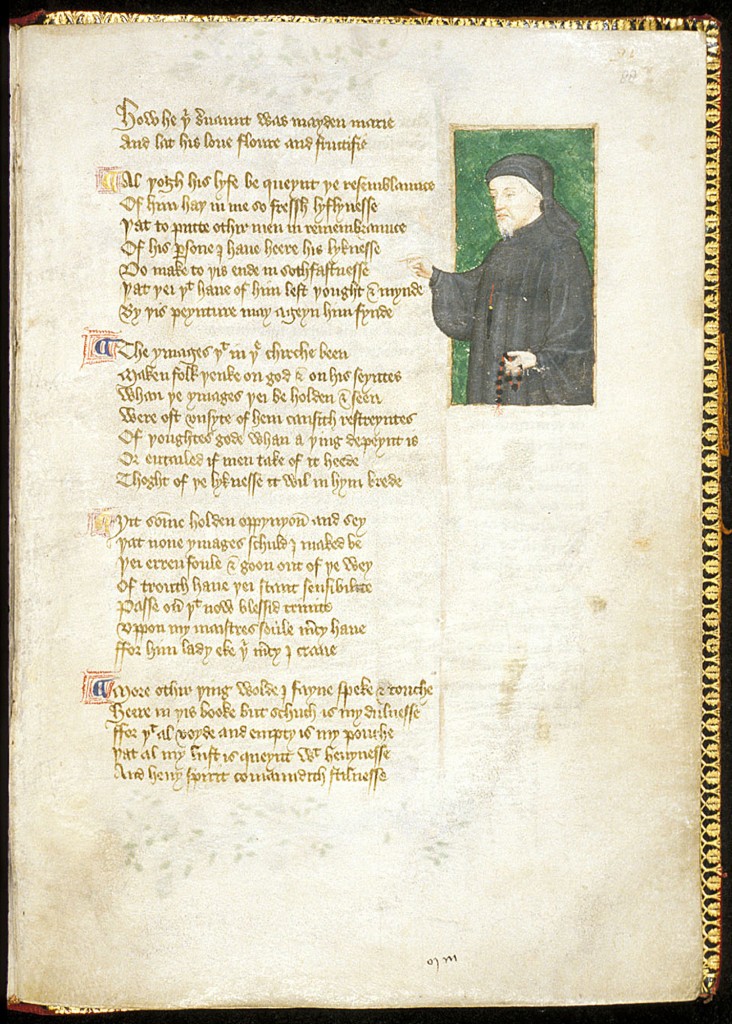 How he þͥ seruaunt was mayden marie
And lat his loue floure and fructifie
Al þogh his lyfe be queynt þe resemblaunce
Of him haþ in me so fressh lyflynesse
Þat to putte othir men in remembraunce
Of his p̱sone I haue heere his lyknesse
Do make to þis ende in sothfastnesse
Þat þei þͭ haue of him left þought & mynde
By þis peynture may ageyn him fynde
The ymages þͭ in þͤ chirche been
Maken folk þenke on god & on his seyntes
Whan þe ymages þei be holden & seen
Were oft vnsyte of hem causith restreyntes
Of þoughtes gode whan a þing depeynt is
Or entailed if men take of it heede
Thoght of þe lyknesse it wil in hym brede
Ȝit som̄e holden oppynyon̄ and sey
Þat none ymages schuld I maked be
Þei erren foule & goon out of þe wey
Of trouth haue þei scant sensibilite
Passe ou̓ þͭ now blessid trinite
Vppon my maistres soule m̓cy haue
ffor him lady eke þͥ m̓cy I craue
More othir þing wolde I fayne speke & touche
Heere in þis booke but schuch is my dulnesse
ffor þͭ al voyde and empty is my pouche
Þat al my lust is queynt wͭ heuynesse
And heuy spirit comaundith stilnesse
88